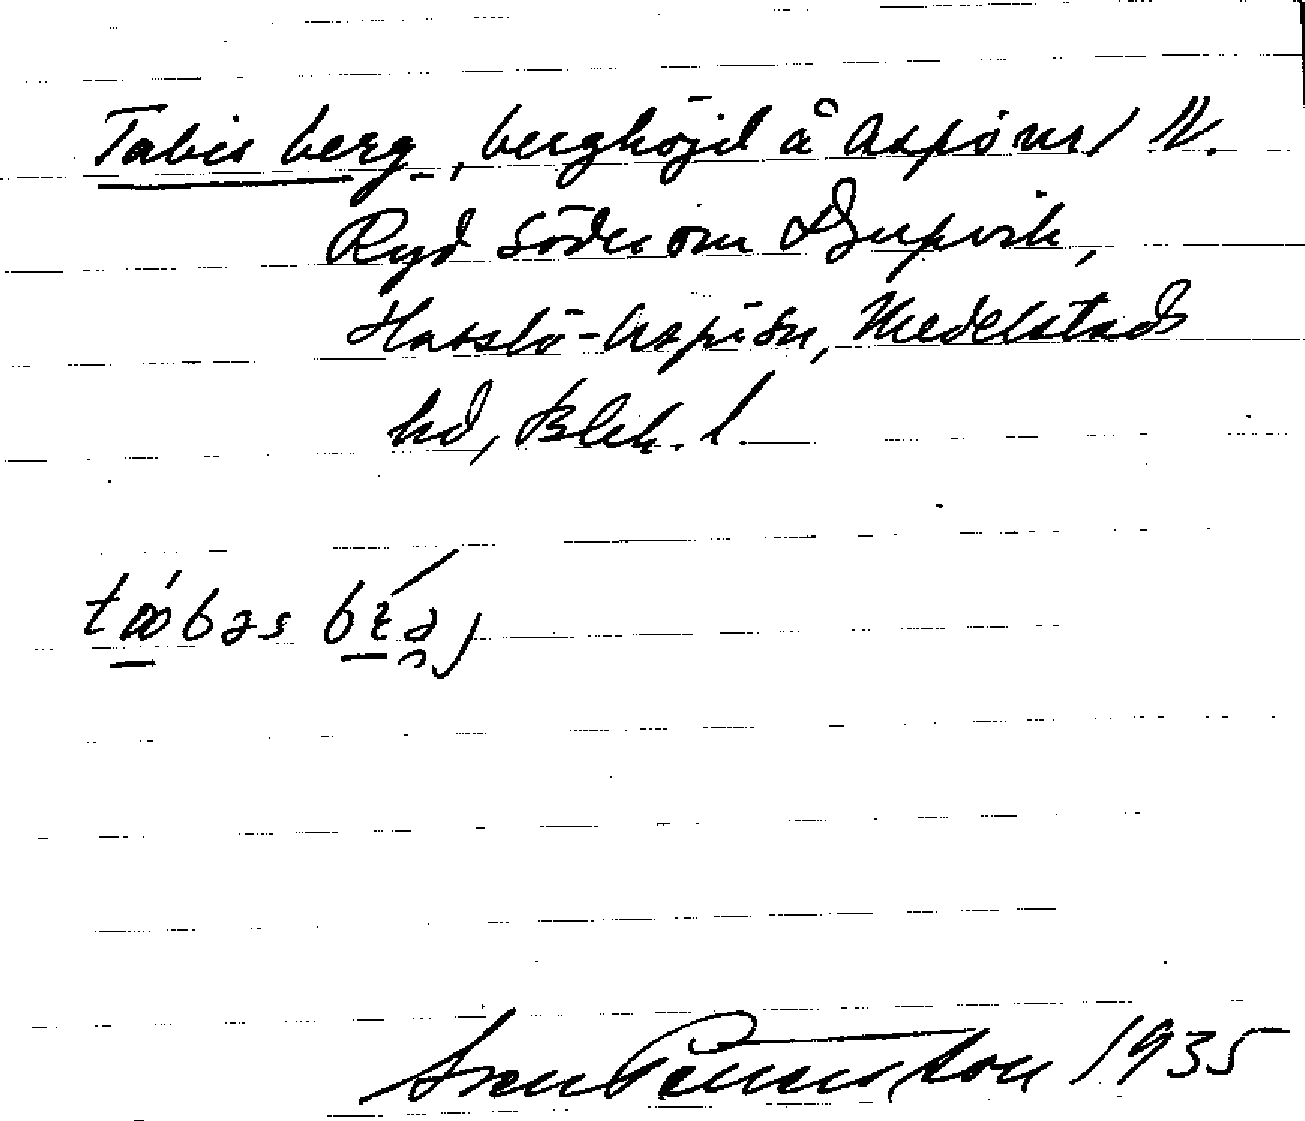 Tabis berg, berghöjd å Aspöns N.
Ryd söder om Djupvik,
Hasslö-Aspöön, Medelstads
hd, Blek. l.
Sven Benson 1935